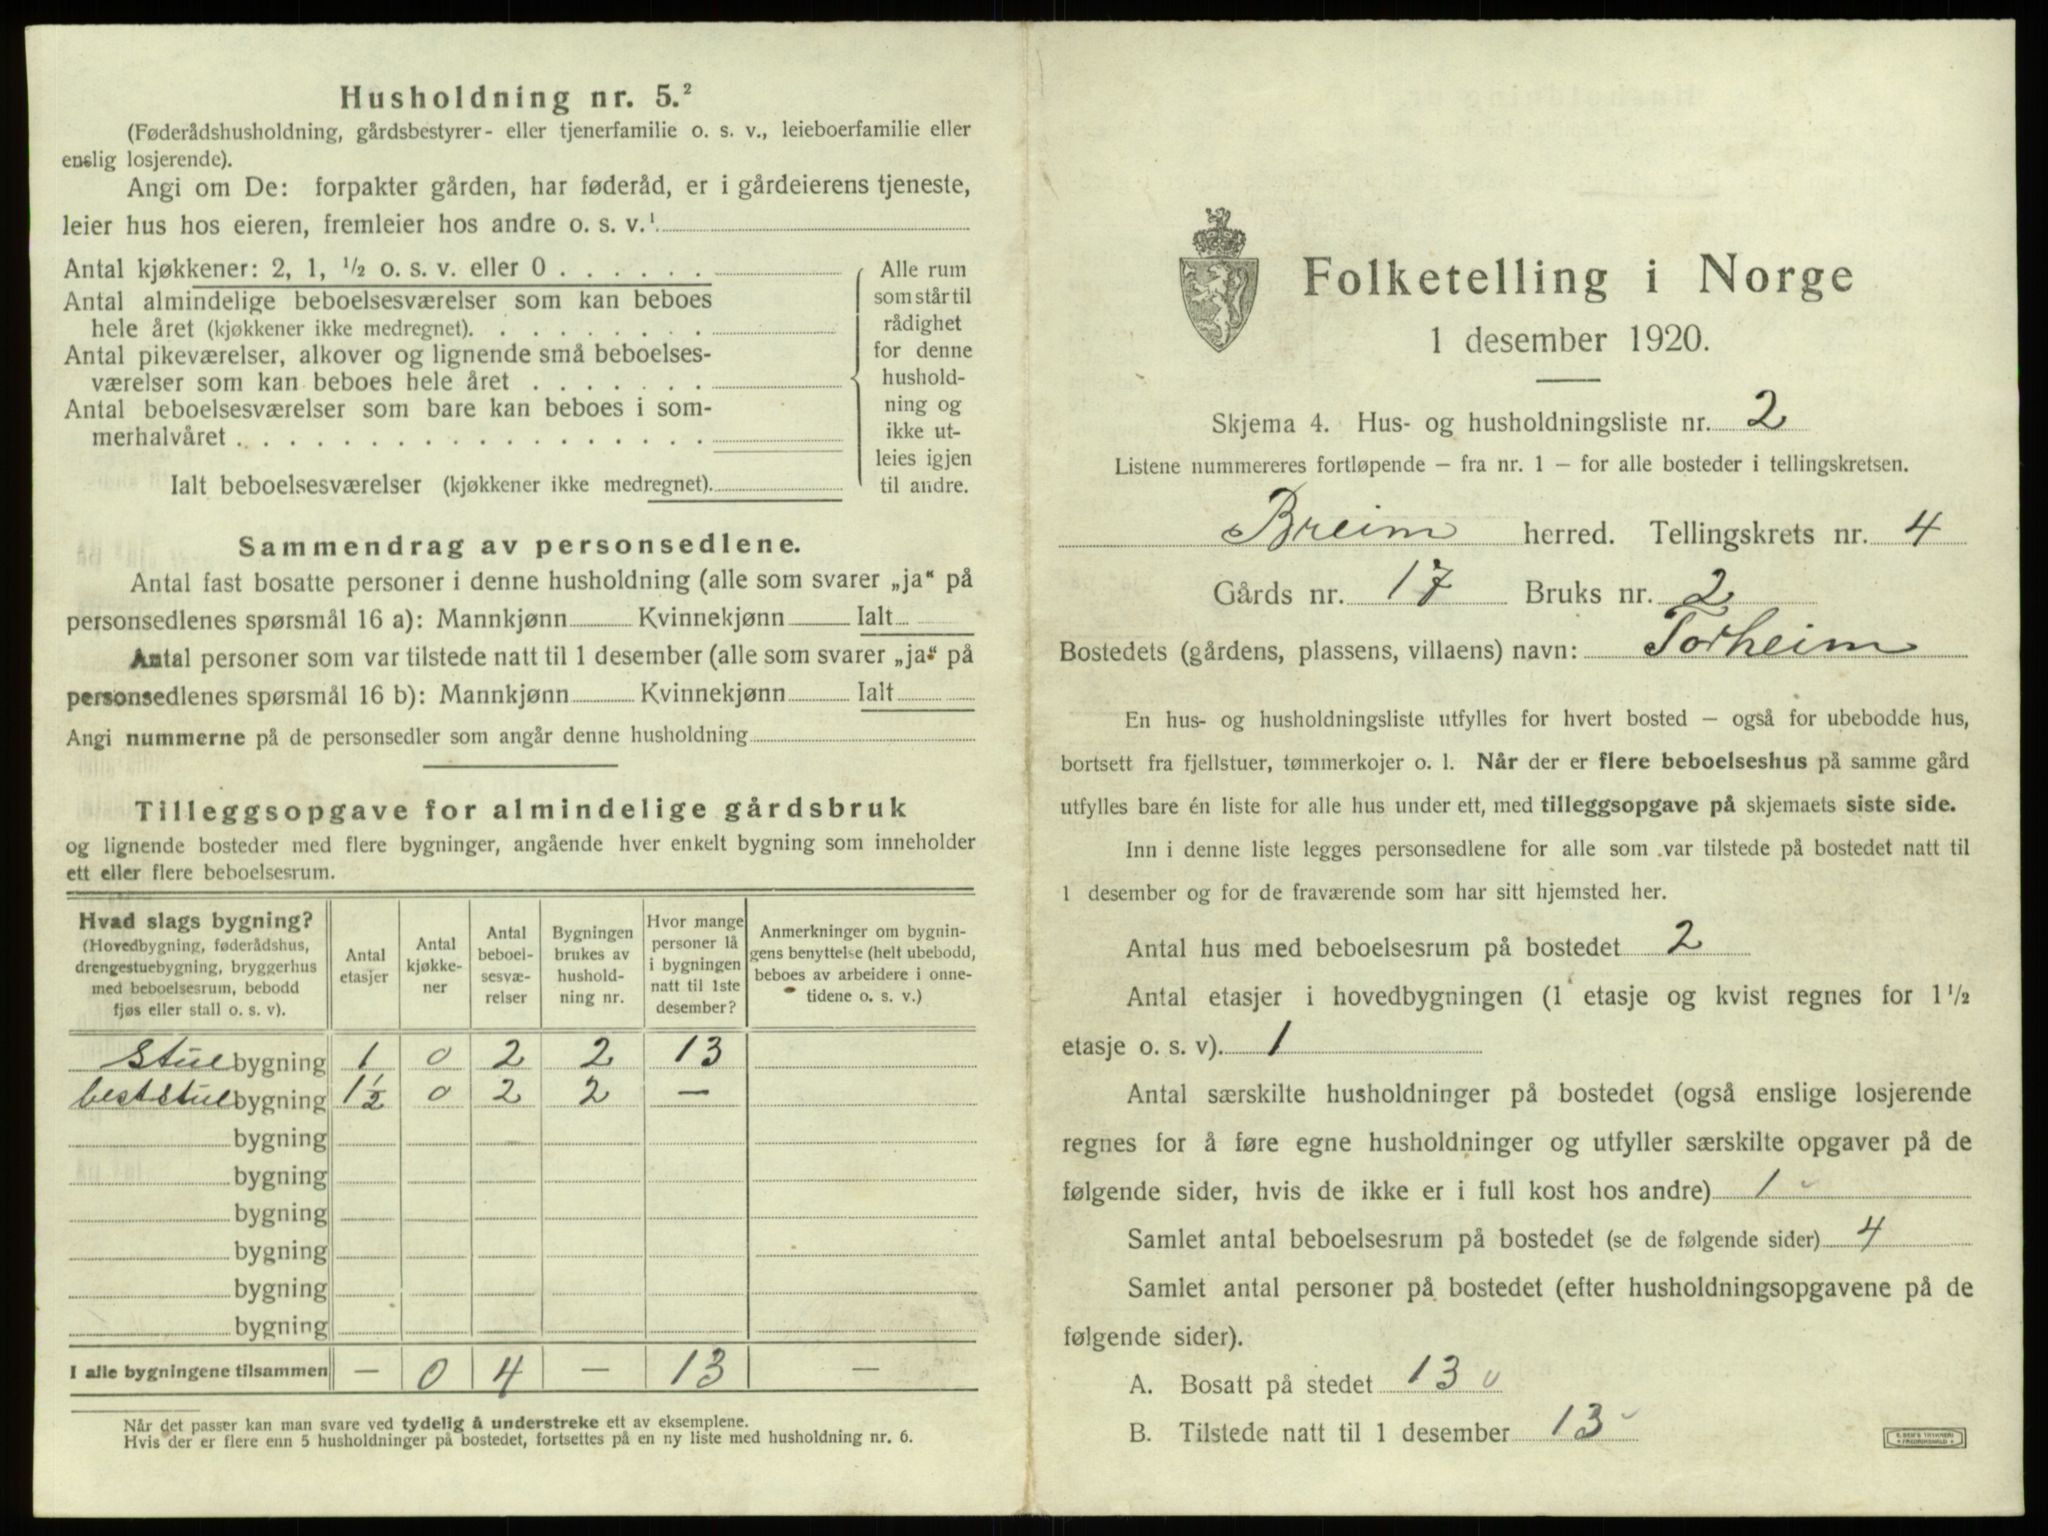 Husholdning nr. 5.²
(Føderådshusholdning, gårdsbestyrer- eller tjenerfamilie o. s. v., leieboerfamilie eller
enslig losjerende).
Angi om De: forpakter gården, har føderåd, er i gårdeierens tjeneste,
leier hus hos eieren, fremleier hos andre o. s. v.¹
Antal kjøkkener: 2, 1, ½ o. s. v. eller 0 . . . . . .
Antal almindelige beboelsesværelser som kan beboes
hele året (kjøkkener ikke medregnet). . . . . . . . .
Antal pikeværelser, alkover og lignende små beboelses-
værelser som kan beboes hele året . . . . . . .
Antal beboelsesværelser som bare kan beboes i som-
merhalvåret . . . . . . . . . . . . . . . . . .
Ialt beboelsesværelser (kjøkkener ikke medregnet).
Alle rum
som står til
rådighet
for denne
hushold-
ning og
ikke ut-
leies igjen
til andre.
Sammendrag av personsedlene.
Antal fast bosatte personer i denne husholdning (alle som svarer „ja“ på
personsedlenes spørsmål 16 a): Mannkjønn Kvinnekjønn Ialt
Antal personer som var tilstede natt til 1 desember (alle som svarer „ja“ på
personsedlenes spørsmål 16 b): Mannkjønn Kvinnekjønn Ialt
Angi nummerne på de personsedler som angår denne husholdning
Tilleggsopgave for almindelige gårdsbruk
og lignende bosteder med flere bygninger, angående hver enkelt bygning som inneholder
ett eller flere beboelsesrum.
Hvad slags bygning?
(Hovedbygning, føderådshus,
drengestuebygning, bryggerhus
med beboelsesrum, bebodd
fjøs eller stall o. s. v).
Antal
etasjer
Antal
kjøkke-
ner
Antal
beboel-
sesvæ-
relser
Bygningen
brukes av
hushold-
ning nr.
Hvor mange
personer lå
i bygningen
natt til 1ste
desember?
Anmerkninger om bygnin-
gens benyttelse (helt ubebodd,
beboes av arbeidere i onne-
tidene o. s. v.)
stuebygning 1 0 2 2 13
beststuebygning 1½ 0 2 2 —
bygning
bygning
bygning
bygning
bygning
bygning
I alle bygningene tilsammen — 0 4 — 13 —
Når det passer kan man svare ved tydelig å understreke ett av eksemplene.
Hvis der er flere enn 5 husholdninger på bostedet, fortsettes på en ny liste med husholdning nr. 6.
Folketelling i Norge
1 desember 1920.
Skjema 4. Hus- og husholdningsliste nr. 2
Listene nummereres fortløpende – fra nr. 1 – for alle bosteder i tellingskretsen.
Breim herred. Tellingskrets nr. 4
Gårds nr. 17 Bruks nr. 2
Bostedets (gårdens, plassens, villaens) navn: Torheim
En hus- og husholdningsliste utfylles for hvert bosted – også for ubebodde hus,
bortsett fra fjellstuer, tømmerkojer o. l. Når der er flere beboelseshus på samme gård
utfylles bare én liste for alle hus under ett, med tilleggsopgave på skjemaets siste side.
Inn i denne liste legges personsedlene for alle som var tilstede på bostedet natt til
1 desember og for de fraværende som har sitt hjemsted her.
Antal hus med beboelsesrum på bostedet 2
Antal etasjer i hovedbygningen (1 etasje og kvist regnes for 1½
etasje o. s. v). 1
Antal særskilte husholdninger på bostedet (også enslige losjerende
regnes for å føre egne husholdninger og utfyller særskilte opgaver på de
følgende sider, hvis de ikke er i full kost hos andre) 1
Samlet antal beboelsesrum på bostedet (se de følgende sider) 4
Samlet antal personer på bostedet (efter husholdningsopgavene på de
følgende sider).
A. Bosatt på stedet 13
B. Tilstede natt til 1 desember 13